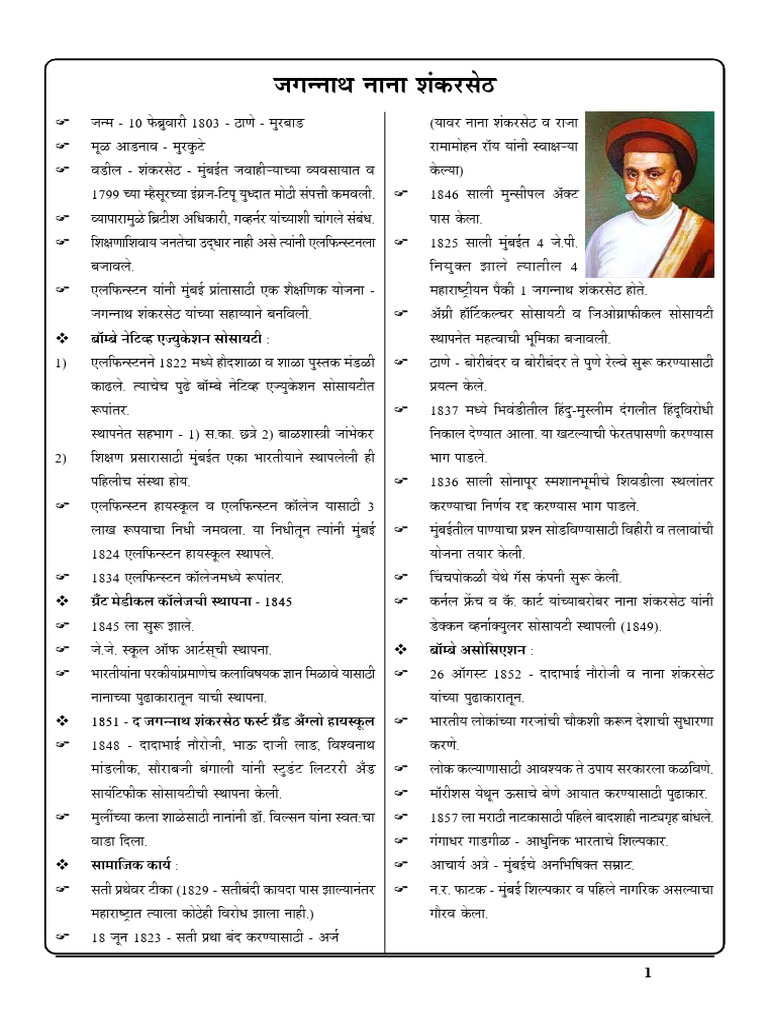 जगन्नाथ नाना शंकरसेठ
☞ जन्म - 10 फेब्रुवारी 1803 - ठाणे - मुरबाड
☞ मूळ आडनाव - मुरकुटे
☞ वडील - शंकरसेठ - मुंबईत जवाहीऱ्याच्या व्यवसायात व
1799 च्या म्हैसूरच्या इंग्रज-टिपू युध्दात मोठी संपत्ती कमवली.
☞ व्यापारामुळे ब्रिटीश अधिकारी, गव्हर्नर यांच्याशी चांगले संबंध.
☞ शिक्षणाशिवाय जनतेचा उद्धार नाही असे त्यांनी एलफिन्स्टनला
बजावले.
☞ एलफिन्स्टन यांनी मुंबई प्रांतासाठी एक शैक्षणिक योजना -
जगन्नाथ शंकरसेठ यांच्या सहाय्याने बनविली.
❖ बॉम्बे नेटिव्ह एज्युकेशन सोसायटी :
1) एलफिन्स्टनने 1822 मध्ये हौदशाळा व शाळा पुस्तक मंडळी
काढले. त्याचेच पुढे बॉम्बे नेटिव्ह एज्युकेशन सोसायटीत
रूपांतर.
स्थापनेत सहभाग - 1) स.का. छत्रे 2) बाळशास्त्री जांभेकर
2) शिक्षण प्रसारासाठी मुंबईत एका भारतीयाने स्थापलेली ही
पहिलीच संस्था होय.
☞ एलफिन्स्टन हायस्कूल व एलफिन्स्टन कॉलेज यासाठी 3
लाख रूपयाचा निधी जमवला. या निधीतून त्यांनी मुंबई
1824 एलफिन्स्टन हायस्कूल स्थापले.
☞ 1834 एलफिन्स्टन कॉलेजमध्ये रूपांतर.
❖ ग्रँट मेडीकल कॉलेजची स्थापना - 1845
☞ 1845 ला सुरू झाले.
☞ जे.जे. स्कूल ऑफ आर्टस्‌ची स्थापना.
☞ भारतीयांना परकीयांप्रमाणेच कलाविषयक ज्ञान मिळावे यासाठी
नानाच्या पुढाकारातून याची स्थापना.
❖ 1851 - द जगन्नाथ शंकरसेठ फर्स्ट ग्रँड अँग्लो हायस्कूल
☞ 1848 - दादाभाई नौरोजी, भाऊ दाजी लाड, विश्वनाथ
मांडलीक, सौराबजी बंगाली यांनी स्टुडंट लिटररी अँड
सायंटिफीक सोसायटीची स्थापना केली.
☞ मुलींच्या कला शाळेसाठी नानांनी डॉ. विल्सन यांना स्वत:चा
वाडा दिला.
❖ सामाजिक कार्य :
☞ सती प्रथेवर टीका (1829 - सतीबंदी कायदा पास झाल्यानंतर
महाराष्ट्रात त्याला कोठेही विरोध झाला नाही.)
☞ 18 जून 1823 - सती प्रथा बंद करण्यासाठी - अर्ज
(यावर नाना शंकरसेठ व राजा
रामामोहन रॉय यांनी स्वाक्षऱ्या
केल्या)
☞ 1846 साली मुन्सीपल ॲक्ट
पास केला.
☞ 1825 साली मुंबईत 4 जे.पी.
नियुक्त झाले त्यातील 4
महाराष्ट्रीयन पैकी 1 जगन्नाथ शंकरसेठ होते.
☞ ॲग्री हॉर्टिकल्चर सोसायटी व जिओग्राफीकल सोसायटी
स्थापनेत महत्वाची भूमिका बजावली.
☞ ठाणे - बोरीबंदर व बोरीबंदर ते पुणे रेल्वे सुरू करण्यासाठी
प्रयत्न केले.
☞ 1837 मध्ये भिवंडीतील हिंदु-मुस्लीम दंगलीत हिंदूविरोधी
निकाल देण्यात आला. या खटल्याची फेरतपासणी करण्यास
भाग पाडले.
☞ 1836 साली सोनापूर स्मशानभूमीचे शिवडीला स्थलांतर
करण्याचा निर्णय रद्द करण्यास भाग पाडले.
☞ मुंबईतील पाण्याचा प्रश्न सोडविण्यासाठी विहीरी व तलावांची
योजना तयार केली.
☞ चिंचपोकळी येथे गॅस कंपनी सुरू केली.
☞ कर्नल फ्रेंच व कॅ. कार्ट यांच्याबरोबर नाना शंकरसेठ यांनी
डेक्कन व्हर्नाक्युलर सोसायटी स्थापली (1849).
❖ बॉम्बे असोसिएशन :
☞ 26 ऑगस्ट 1852 - दादाभाई नौरोजी व नाना शंकरसेठ
यांच्या पुढाकारातून.
☞ भारतीय लोकांच्या गरजांची चौकशी करून देशाची सुधारणा
करणे.
☞ लोक कल्याणासाठी आवश्यक ते उपाय सरकारला कळविणे.
☞ मॉरीशस येथून ऊसाचे बेणे आयात करण्यासाठी पुढाकार.
☞ 1857 ला मराठी नाटकासाठी पहिले बादशाही नाट्यगृह बांधले.
☞ गंगाधर गाडगीळ - आधुनिक भारताचे शिल्पकार.
☞ आचार्य अत्रे - मुंबईचे अनभिषिक्त सम्राट.
☞ न.र. फाटक - मुंबई शिल्पकार व पहिले नागरिक असल्याचा
गौरव केला.
1